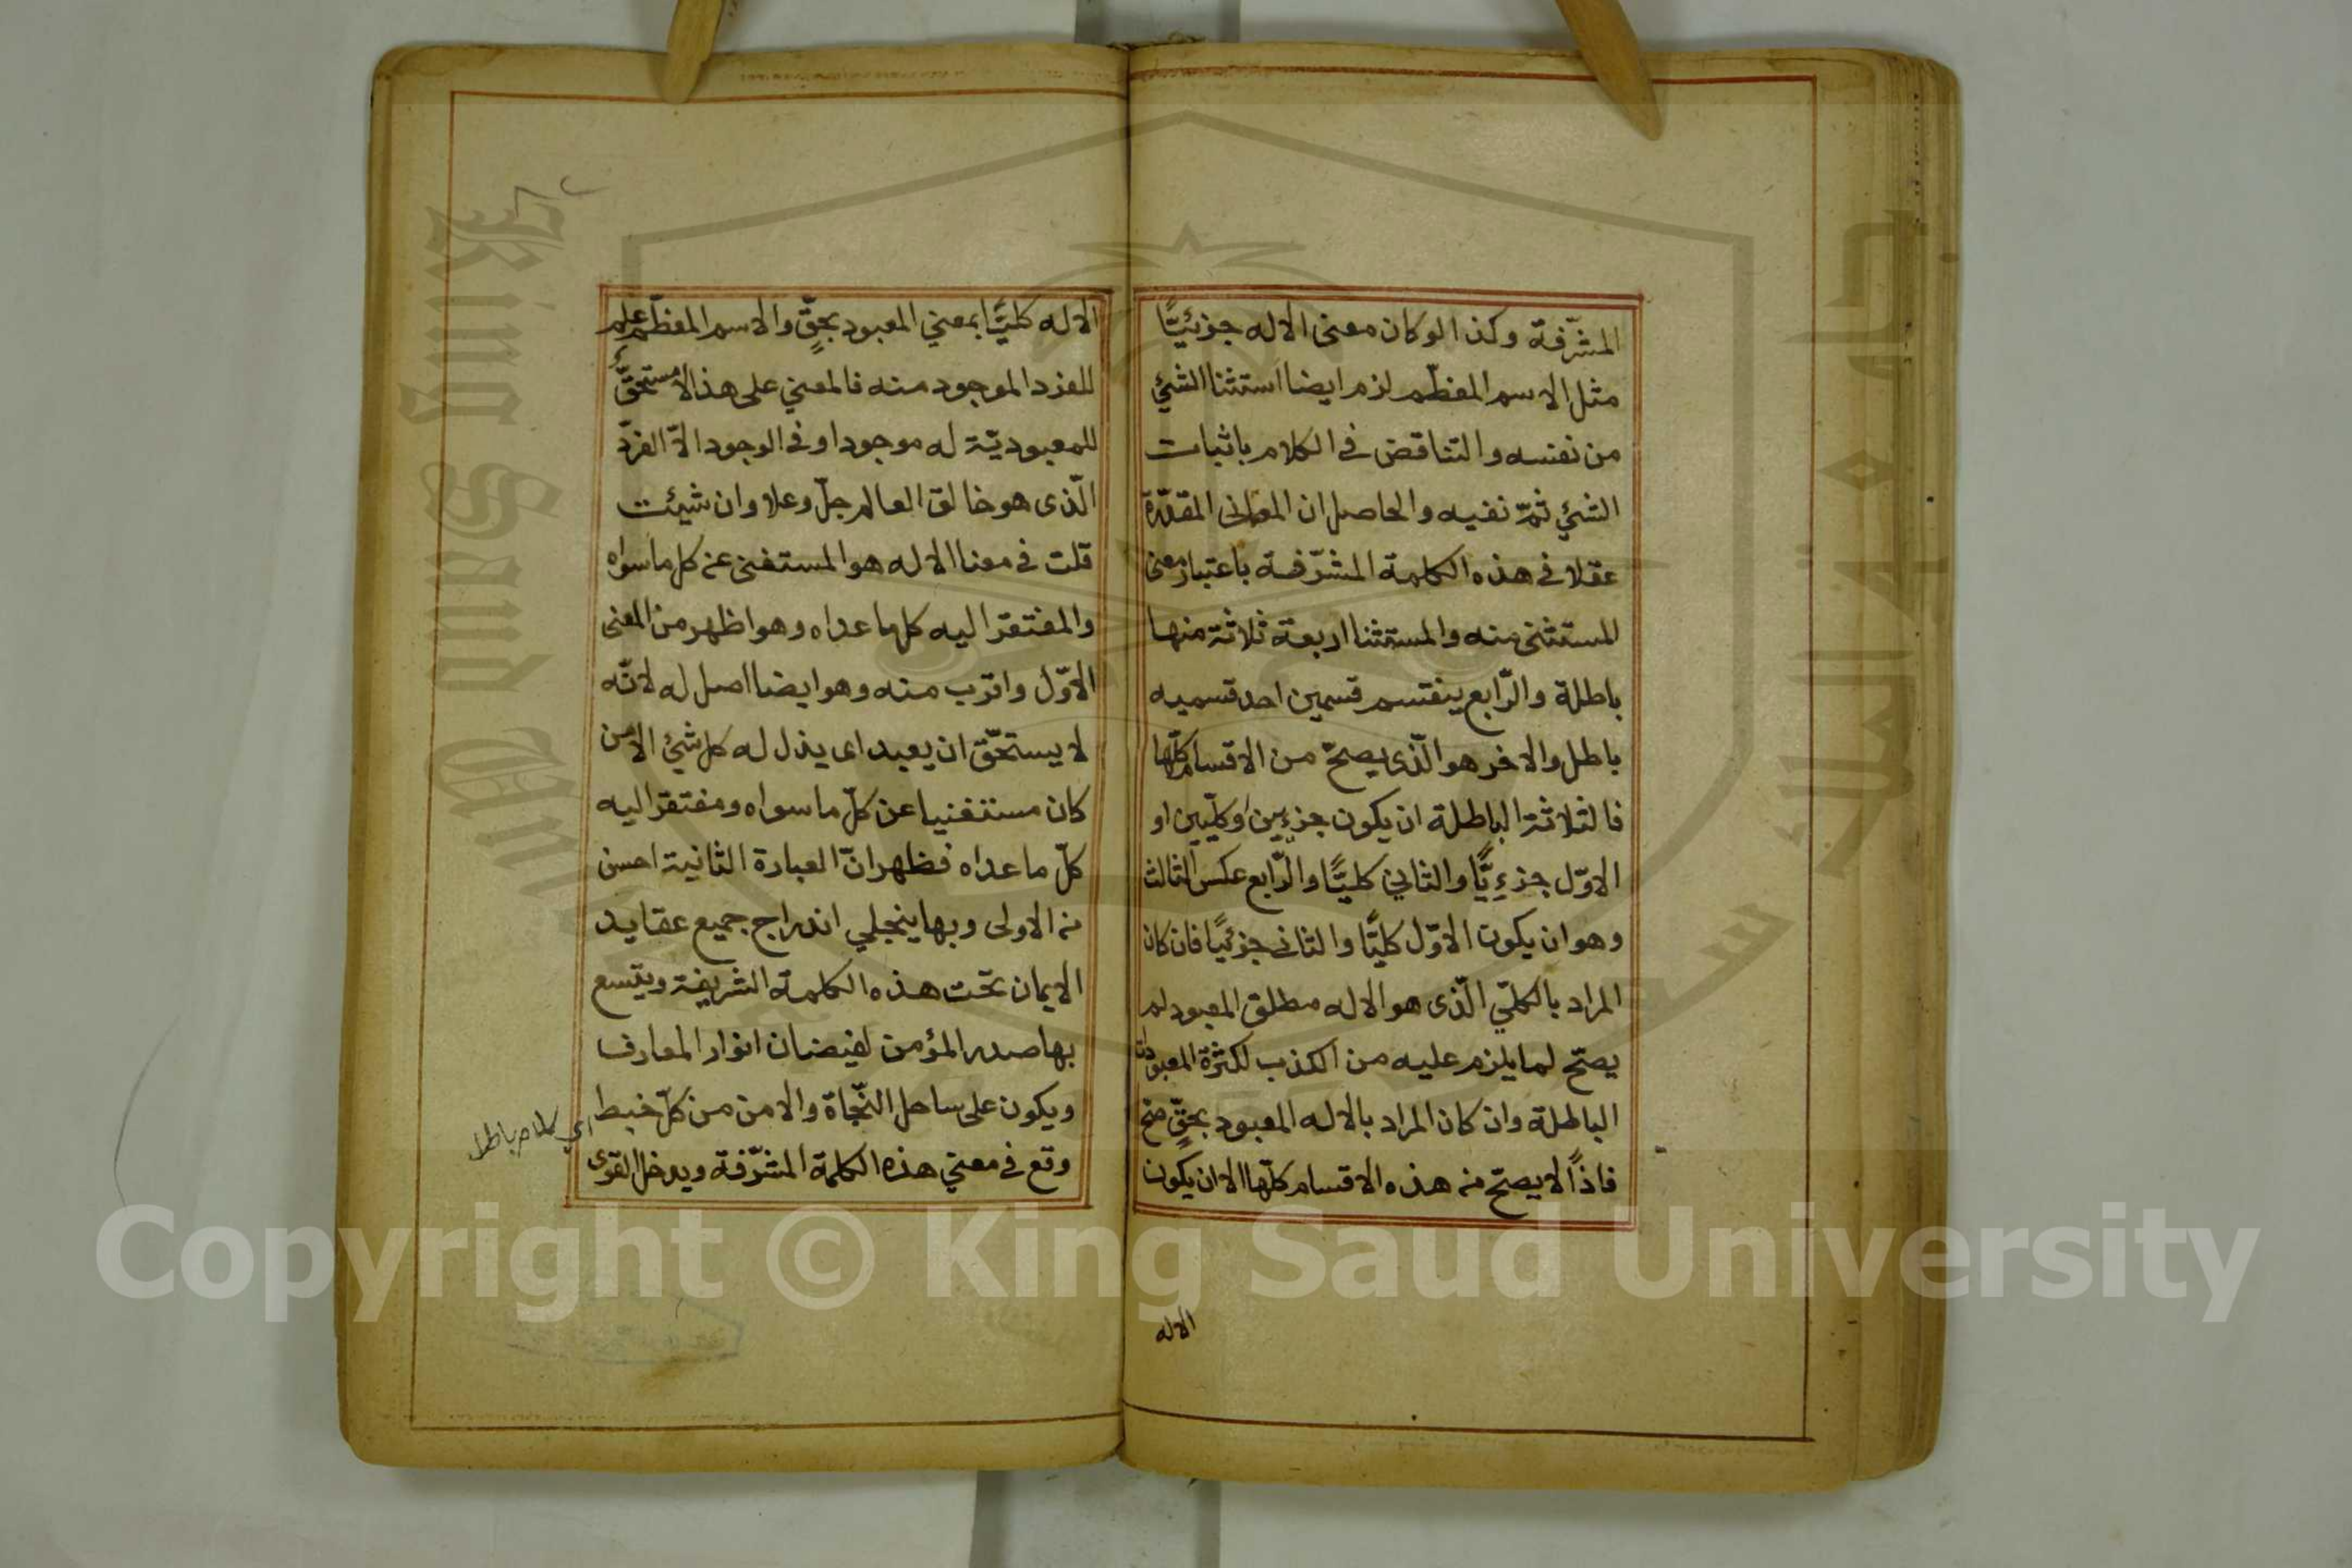 المشرّفة وكذا لو كان معنى الاله جزئيًّا
مثل الاسم المعظّم لزم ايضا استثنا الشئ
من نفسه والتناقض فى الكلام باثبات
الشئ ثمّ نفيه والحاصل ان المعانى المقدّرة
عقلا فى هذه الكلمة المشرّفة باعتبار معنى
المستثنى منه والمستثنا اربعة ثلاثة منها
باطلة والرّابع ينقسم قسمين احد قسميه
باطل والاخر هو الّذى يصحّ من الاقسام كلّها
فالثلاثة الباطلة ان يكون جزءيين او كليّين او
الاوّل جزءيًّا والثاني كليًّا والرّابع عكس الثالث
وهو ان يكون الاوّل كليًّا والثانى جزئيًا فان كان
المراد بالكلّي الّذى هو الاله مطلق المعبود لم
يصحّ لما يلزم عليه من الكذب لكثرة المعبودات
الباطلة وان كان المراد بالاله المعبود بحقٍّ صح
فاذًا لا يصحّ من هذه الاقسام كلّها الا ان يكون
الاله
الاله كليًّا بمعني المعبود بحقٍّ والاسم المعظّم علم
للفرد الموجود منه فالمعني على هذا لا مستحقَّ
للمعبوديّة له موجود او فى الوجود الاّ الفرد
الّذى هو خالق العالم جلّ وعلا وان شيئت
قلت فى معنا الاله هو المستغنى عن كل ما سواه
والمفتقر اليه كل ما عداه وهو اظهر من المعنى
الاوّل واقرب منه وهو ايضا اصل له لانّه
لا يستحقّ ان يعبد اى يذل له كل شئ الا من
كان مستغنيا عن كلّ ما سواه ومفتقرا اليه
كلّ ما عداه فظهر انّ العبارة الثانية احسن
من الاولى وبها ينجلي اندراج جميع عقايد
الايمان تحت هذه الكلمة الشريفة ويتّسع
بها صدر المؤمن لفيضان انوار المعارف
ويكون على ساحل النّجاة والامن من كلّ خبط
اي كلام باطل
وقع فى معني هذه الكلمة المشرّفة ويدخل القوى
Copyright © King Saud University